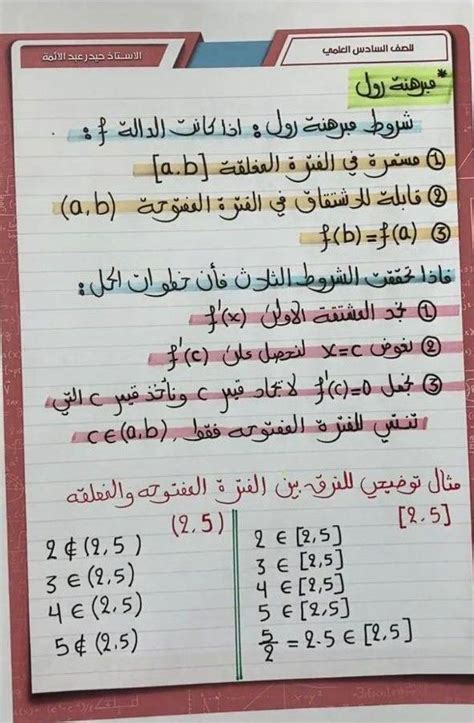 للصف السادس العلمي
الاستاذ حيدر عبد الائمة
* مبرهنة رول
شروط مبرهنة رول : اذا كانت الدالة f :
① مستمرة في الفترة المغلقة [a.b]
② قابلة للاشتقاق في الفترة المفتوحة (a,b)
③ f(b)=f(a)
فاذا تحققت الشروط الثلاث فأن خطوات الحل :
① نجد المشتقة الاولى f'(x)
② نعوض x=c لنحصل على f'(c)
③ نجعل f'(c)=0 لايجاد قيم c ونأخذ قيم c التي
تنتمي للفترة المفتوحة فقط. c∈(a,b)
مثال توضيحي للفرق بين الفترة المفتوحة والمغلقة
[2.5]
2 ∈ [2,5]
3 ∈ [2,5]
4 ∈ [2,5]
5 ∈ [2,5]
5/2 = 2.5 ∈ [2,5]
(2.5)
2 ∉ (2,5)
3 ∈ (2,5)
4 ∈ (2.5)
5 ∉ (2.5)